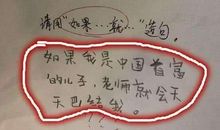 请用“如果…就…”造句。
如果我是中国首富
的儿子,老师就会天
天巴结我。